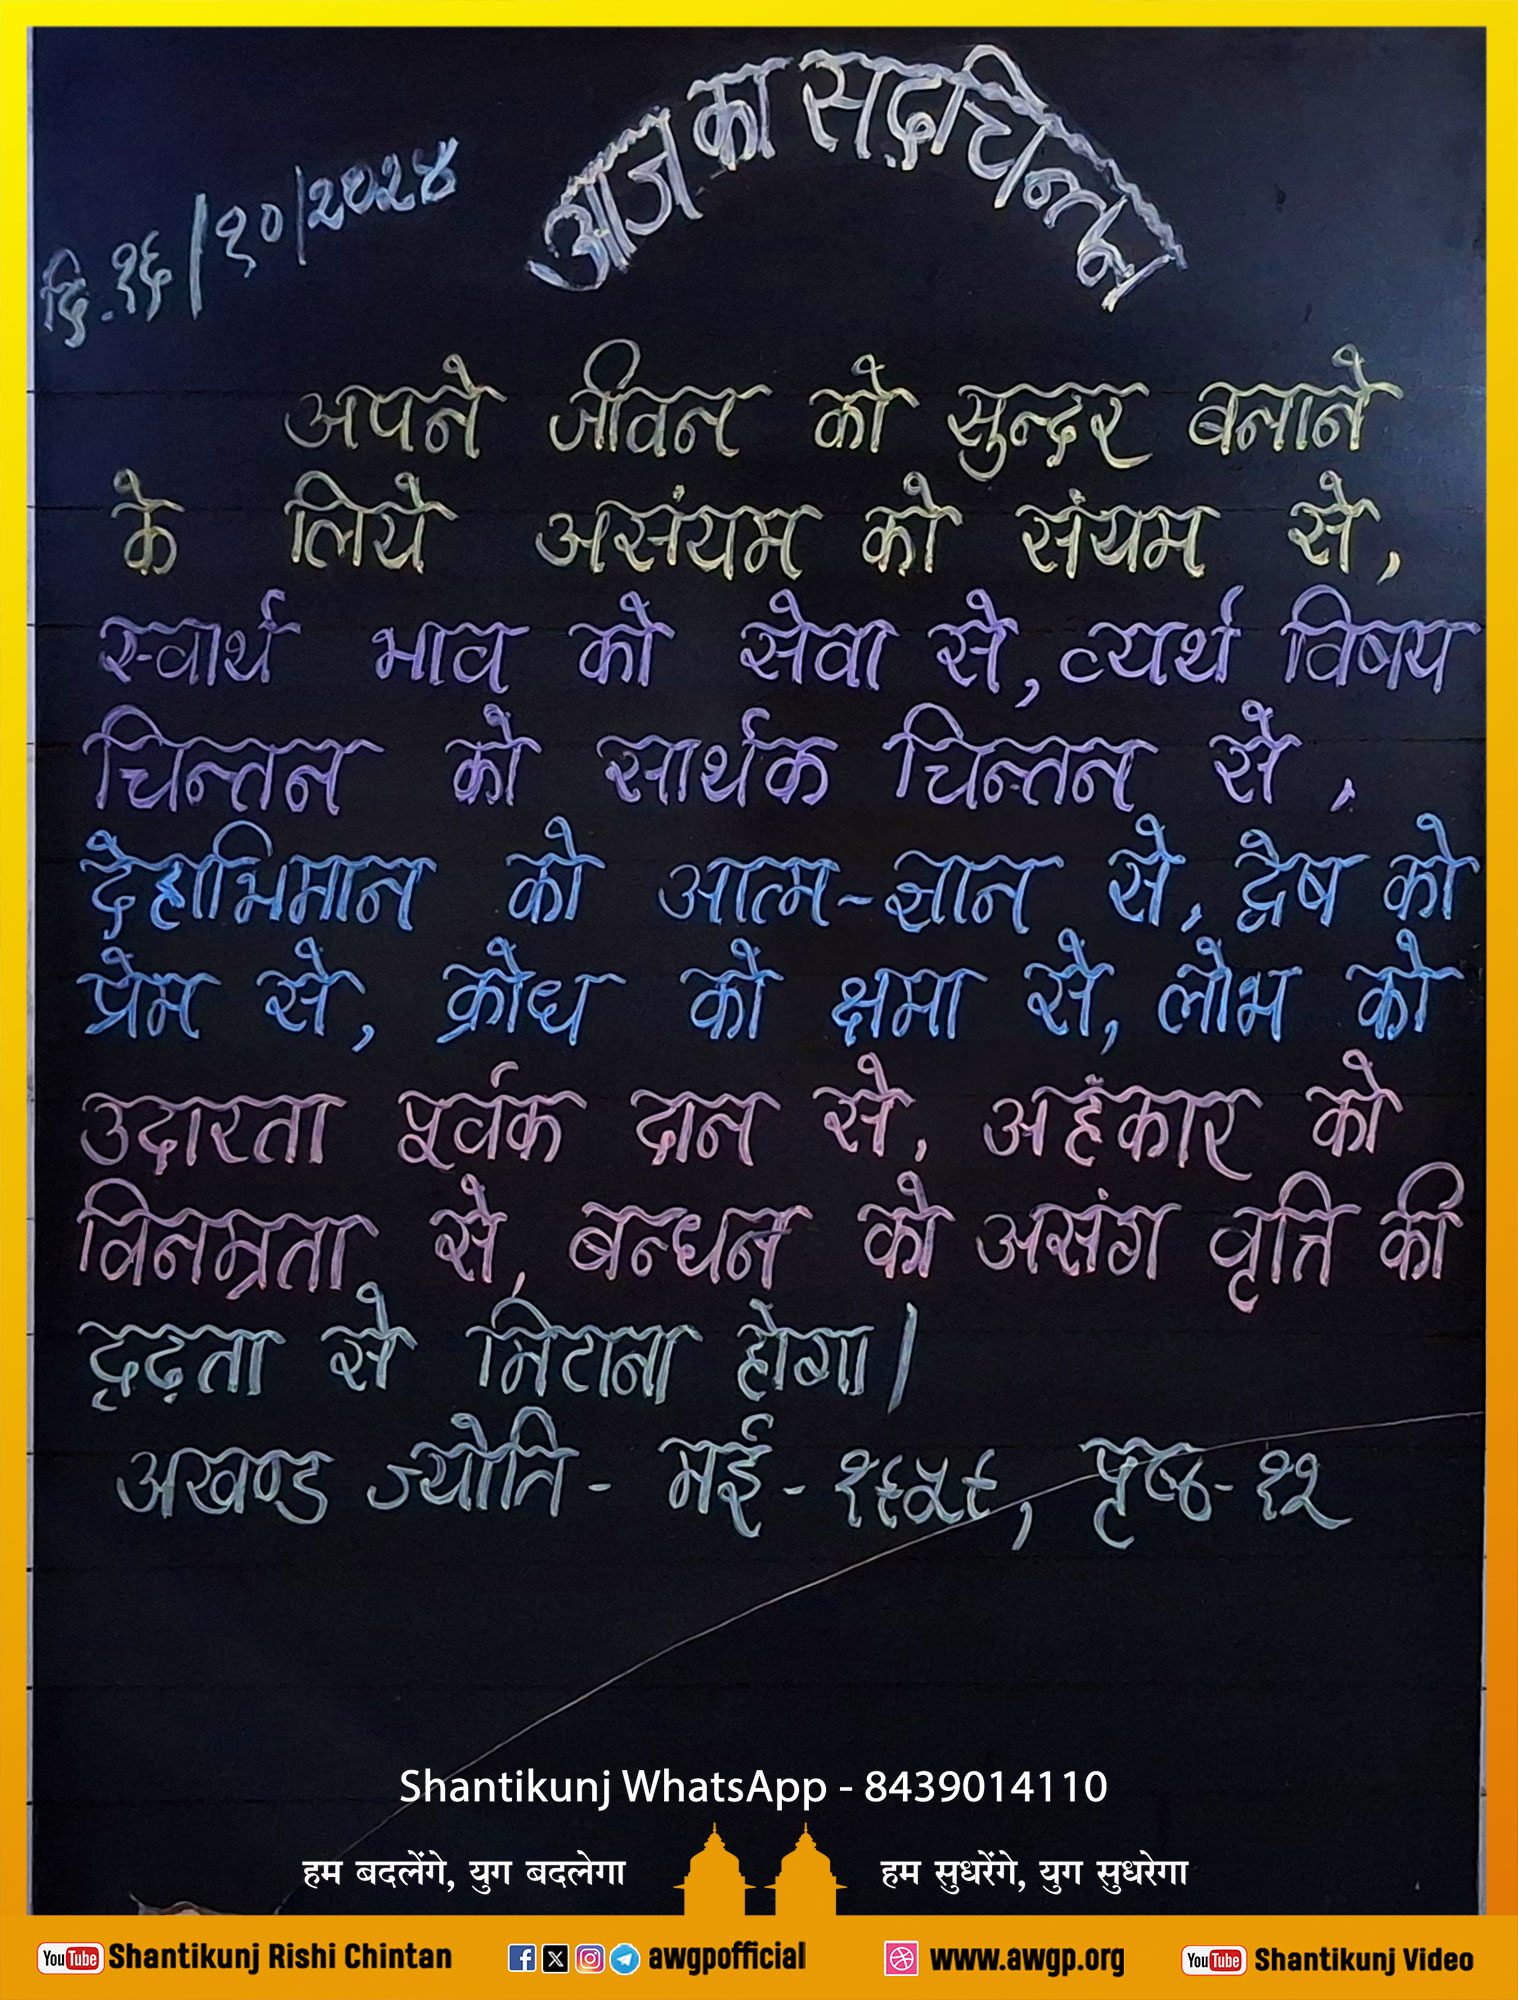 आज का सद्चिन्तन
दि. १६/१०/२०२४
अपने जीवन को सुन्दर बनाने
के लिये असंयम को संयम से,
स्वार्थ भाव को सेवा से, व्यर्थ विषय
चिन्तन को सार्थक चिन्तन से,
देहाभिमान को आत्म-ज्ञान से, द्वेष को
प्रेम से, क्रोध को क्षमा से, लोभ को
उदारता पूर्वक दान से, अहंकार को
विनम्रता से, बन्धन को असंग वृत्ति की
दृढ़ता से मिटाना होगा।
अखण्ड ज्योति - मई - १९५९, पृष्ठ - १२
Shantikunj WhatsApp - 8439014110
हम बदलेंगे, युग बदलेगा हम सुधरेंगे, युग सुधरेगा
YouTube Shantikunj Rishi Chintan awgpofficial www.awgp.org YouTube Shantikunj Video